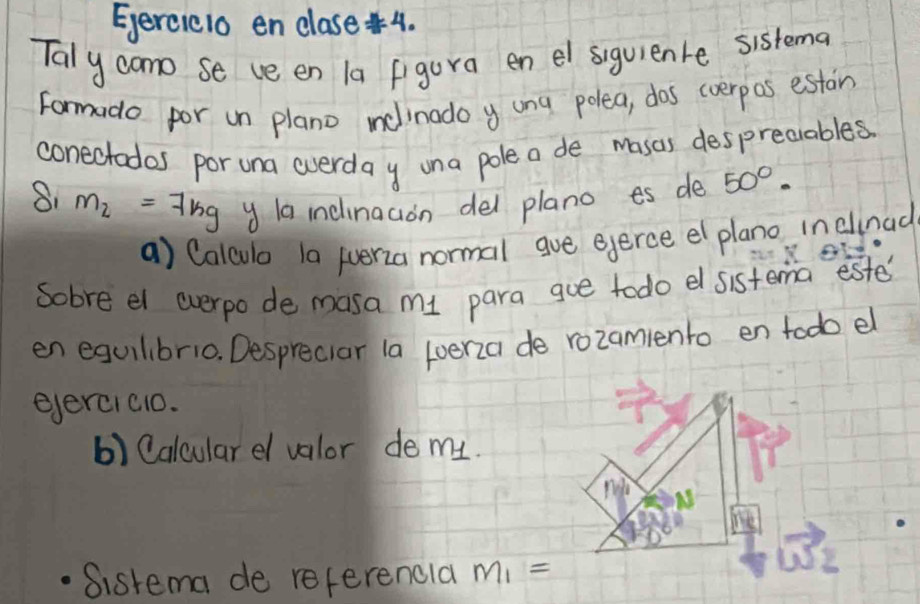 Ejercicio en clase #4.
Tal y como se ve en la figura en el siguiente sistema
Formado por un plano inclinado y una polea, dos cuerpos están
conectados por una cuerda y una polea de masas despreciables.
Si m₂ = 7kg y la inclinación del plano es de 50°.
a) Calcula la fuerza normal que ejerce el plano inclinad
Sobre el cuerpo de masa m1 para que todo el sistema esté
en equilibrio. Despreciar la fuerza de rozamiento en todo el
ejercicio.
b) Calcular el valor de m1.
T
T
m1
N
m2
W2
• Sistema de referencia m₁ =